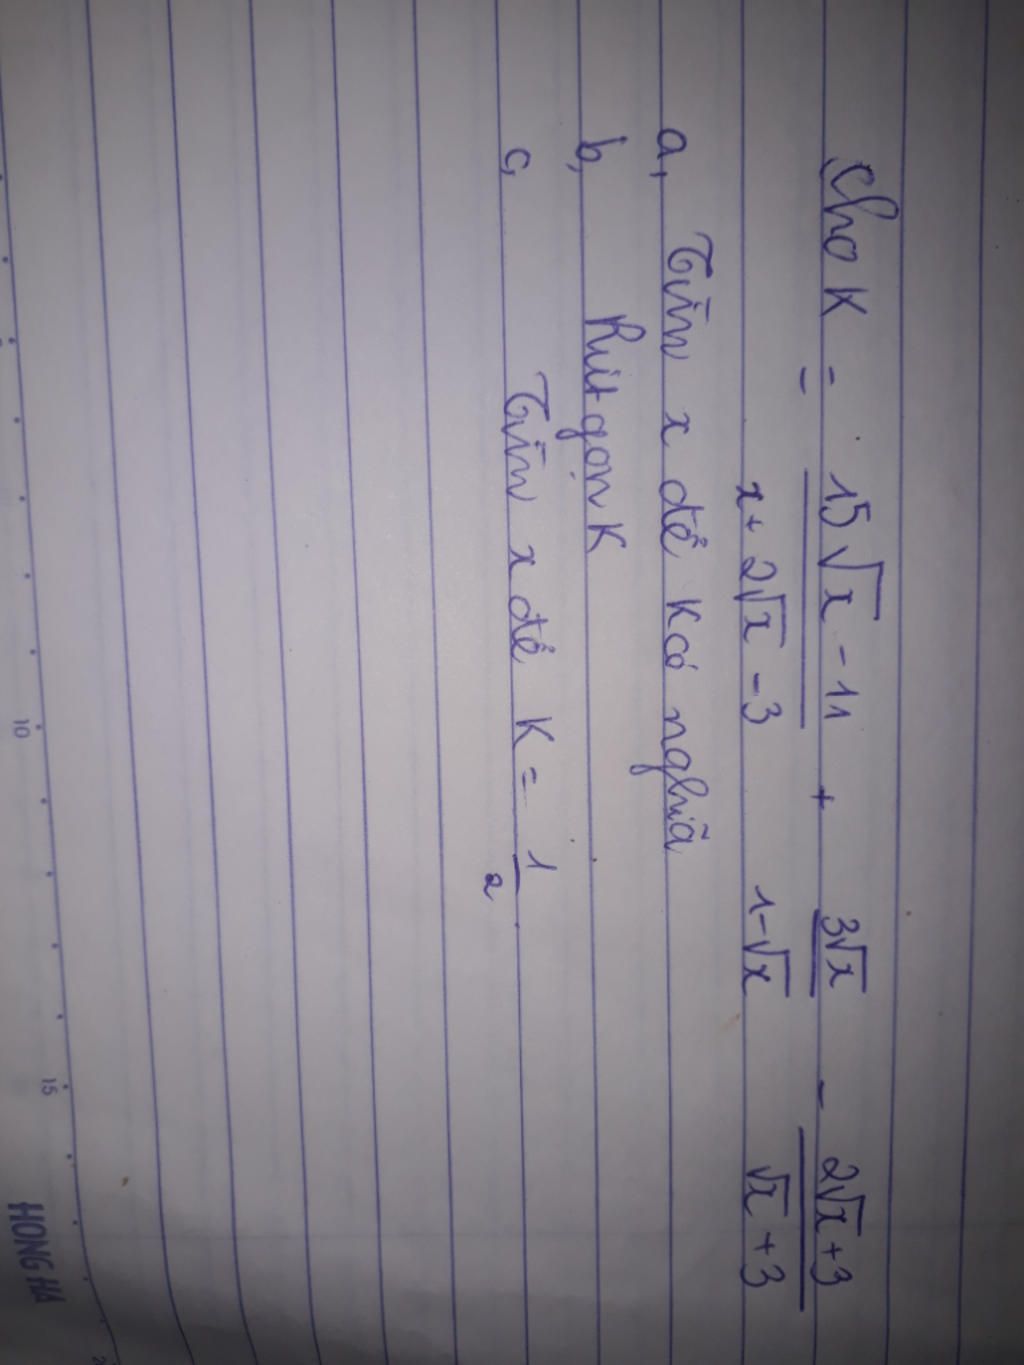 Cho K = 15√x - 11 / x + 2√x - 3 + 3√x / 1 - √x - 2√x + 3 / √x + 3
a, Tìm x để K có nghĩa
b, Rút gọn K
c, Tìm x để K = 1/2
10
15
HONG HA